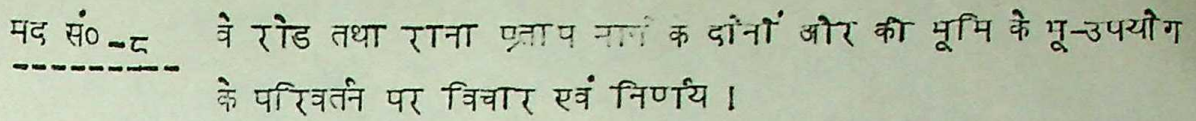 मद सं० -८ वे रोड तथा राना प्रताप मार्ग क दोनों ओर की भूमि के भू-उपयोग
के परिवर्तन पर विचार एवं निर्णय ।